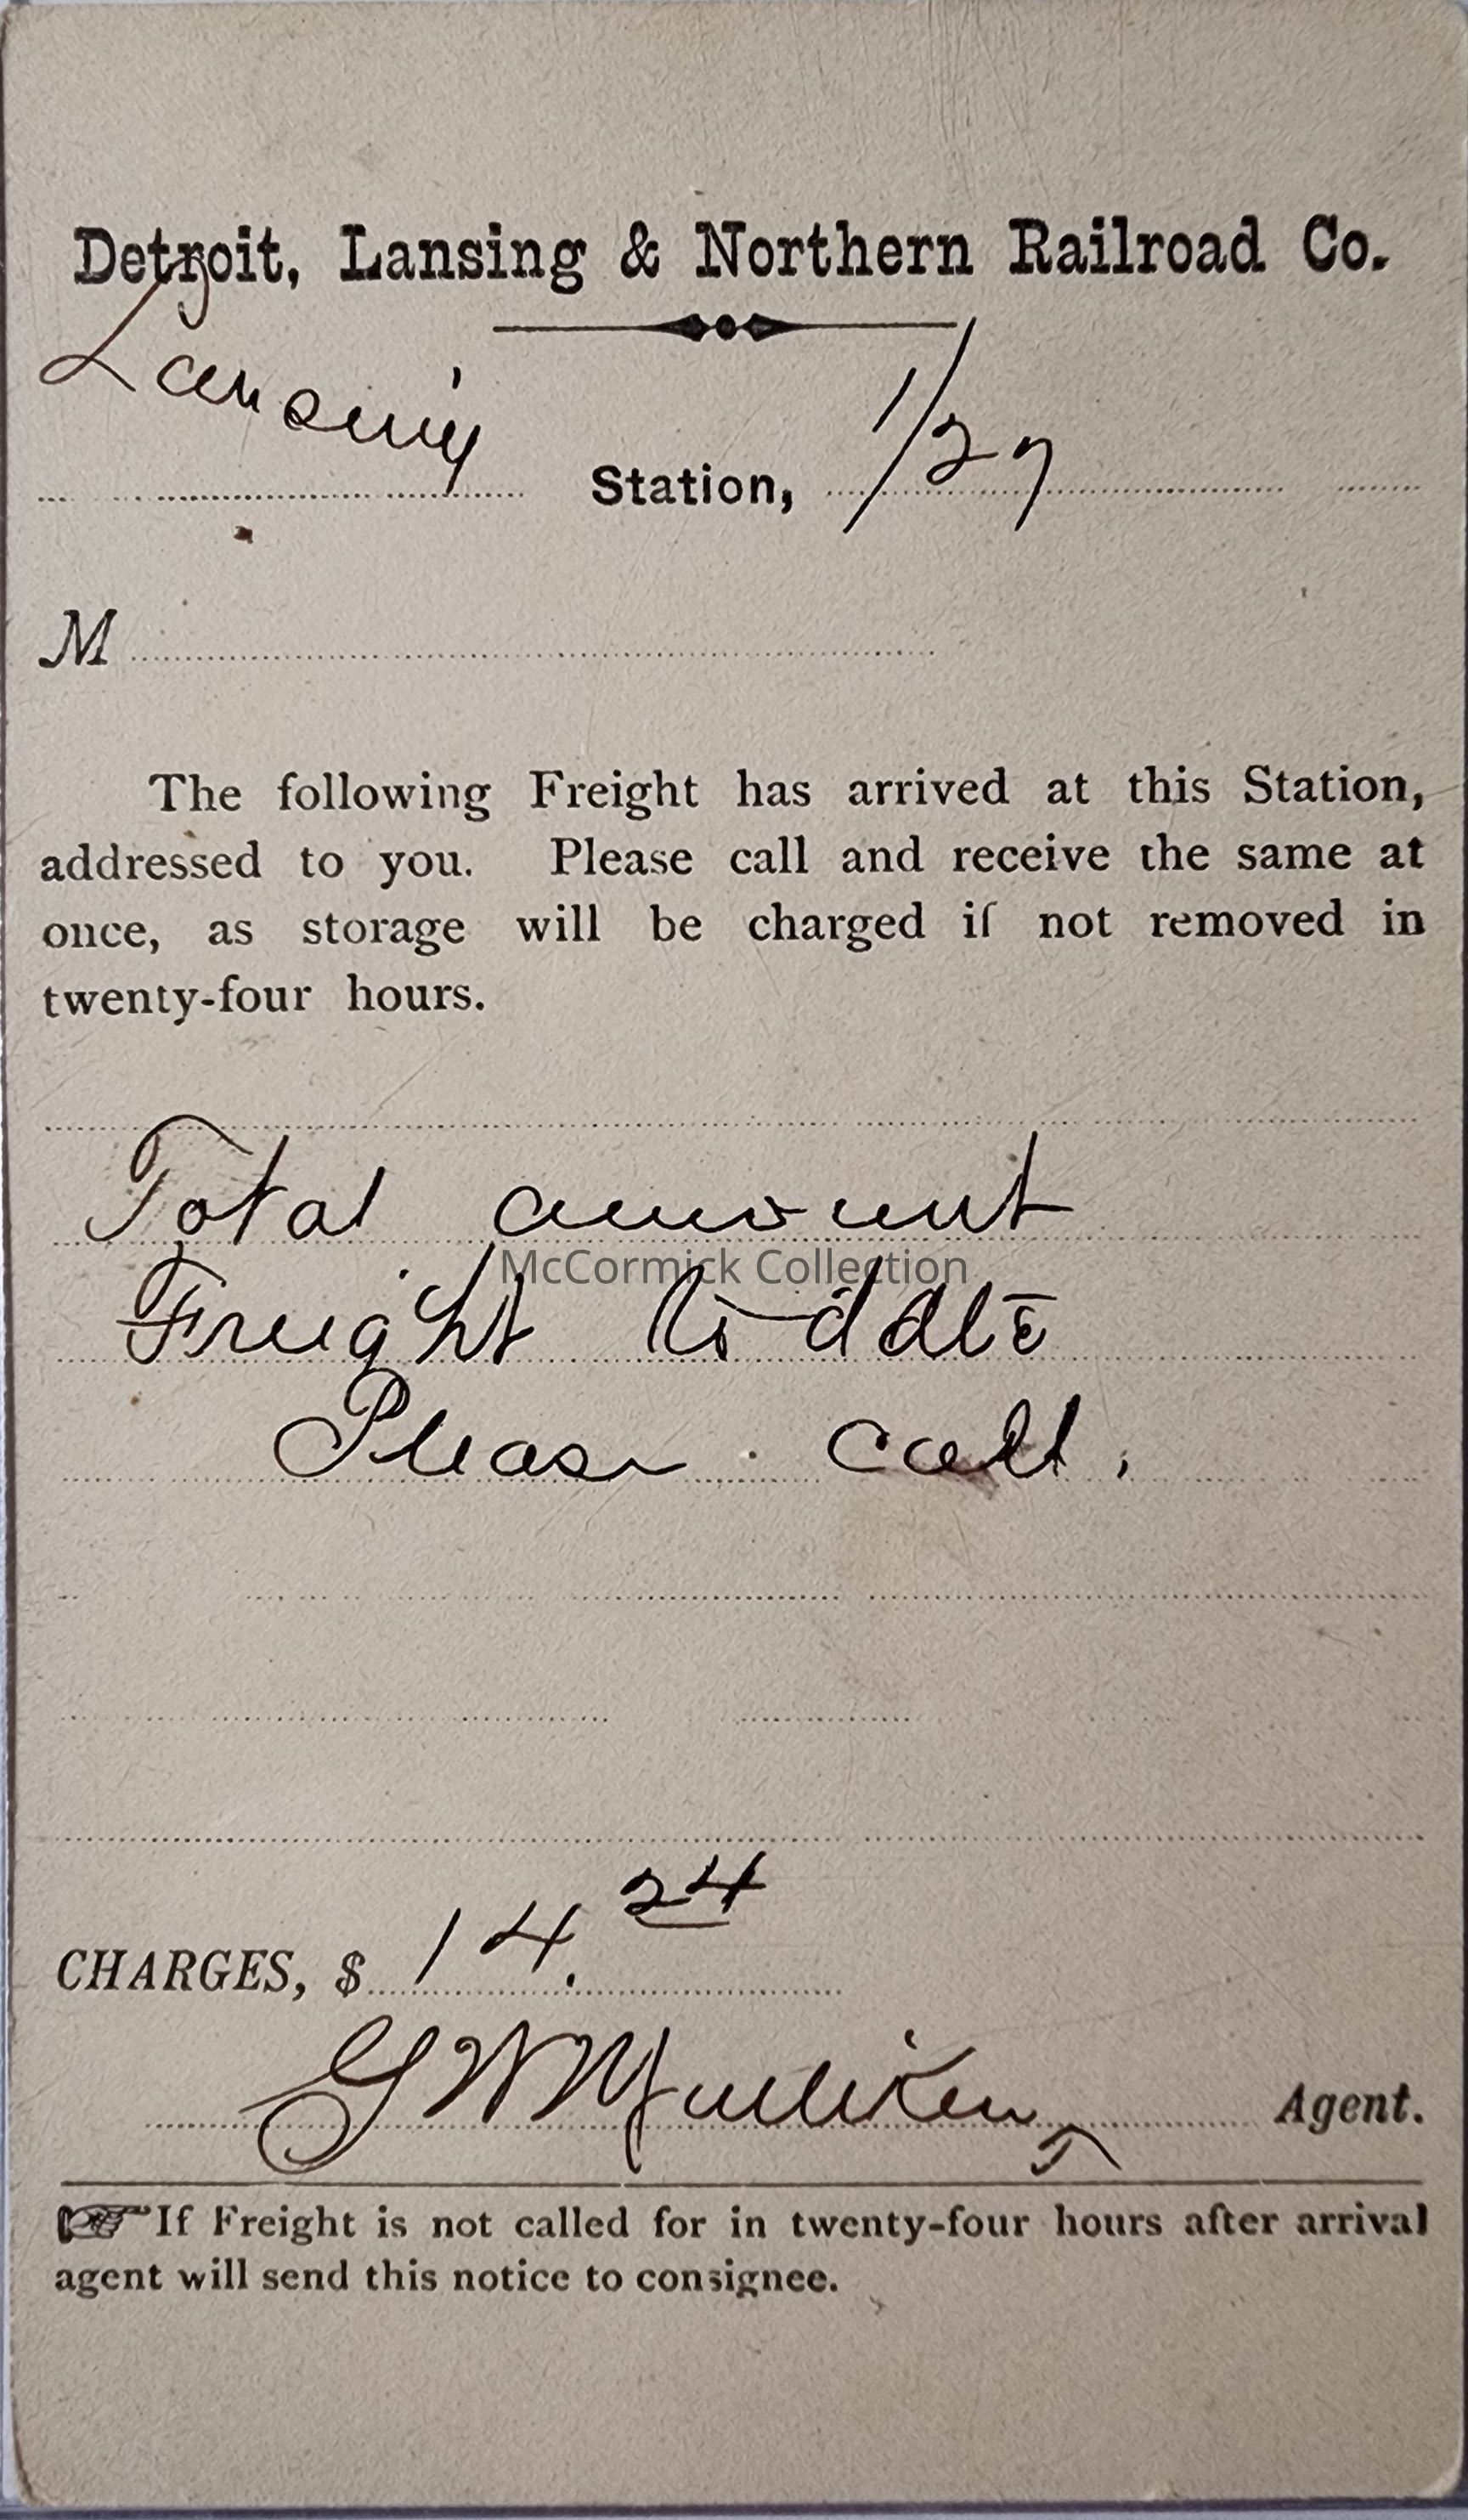 Detroit, Lansing & Northern Railroad Co.
Lansing Station, 1/27
M
The following Freight has arrived at this Station,
addressed to you. Please call and receive the same at
once, as storage will be charged if not removed in
twenty-four hours.
Total amount
McCormick Collection
Freight to date
Please call.
CHARGES, $ 14.24
G W Mulliken Agent.
☞ If Freight is not called for in twenty-four hours after arrival
agent will send this notice to consignee.